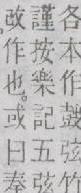 各本作鼓弦
謹按樂記五弦
改作也。或曰奏